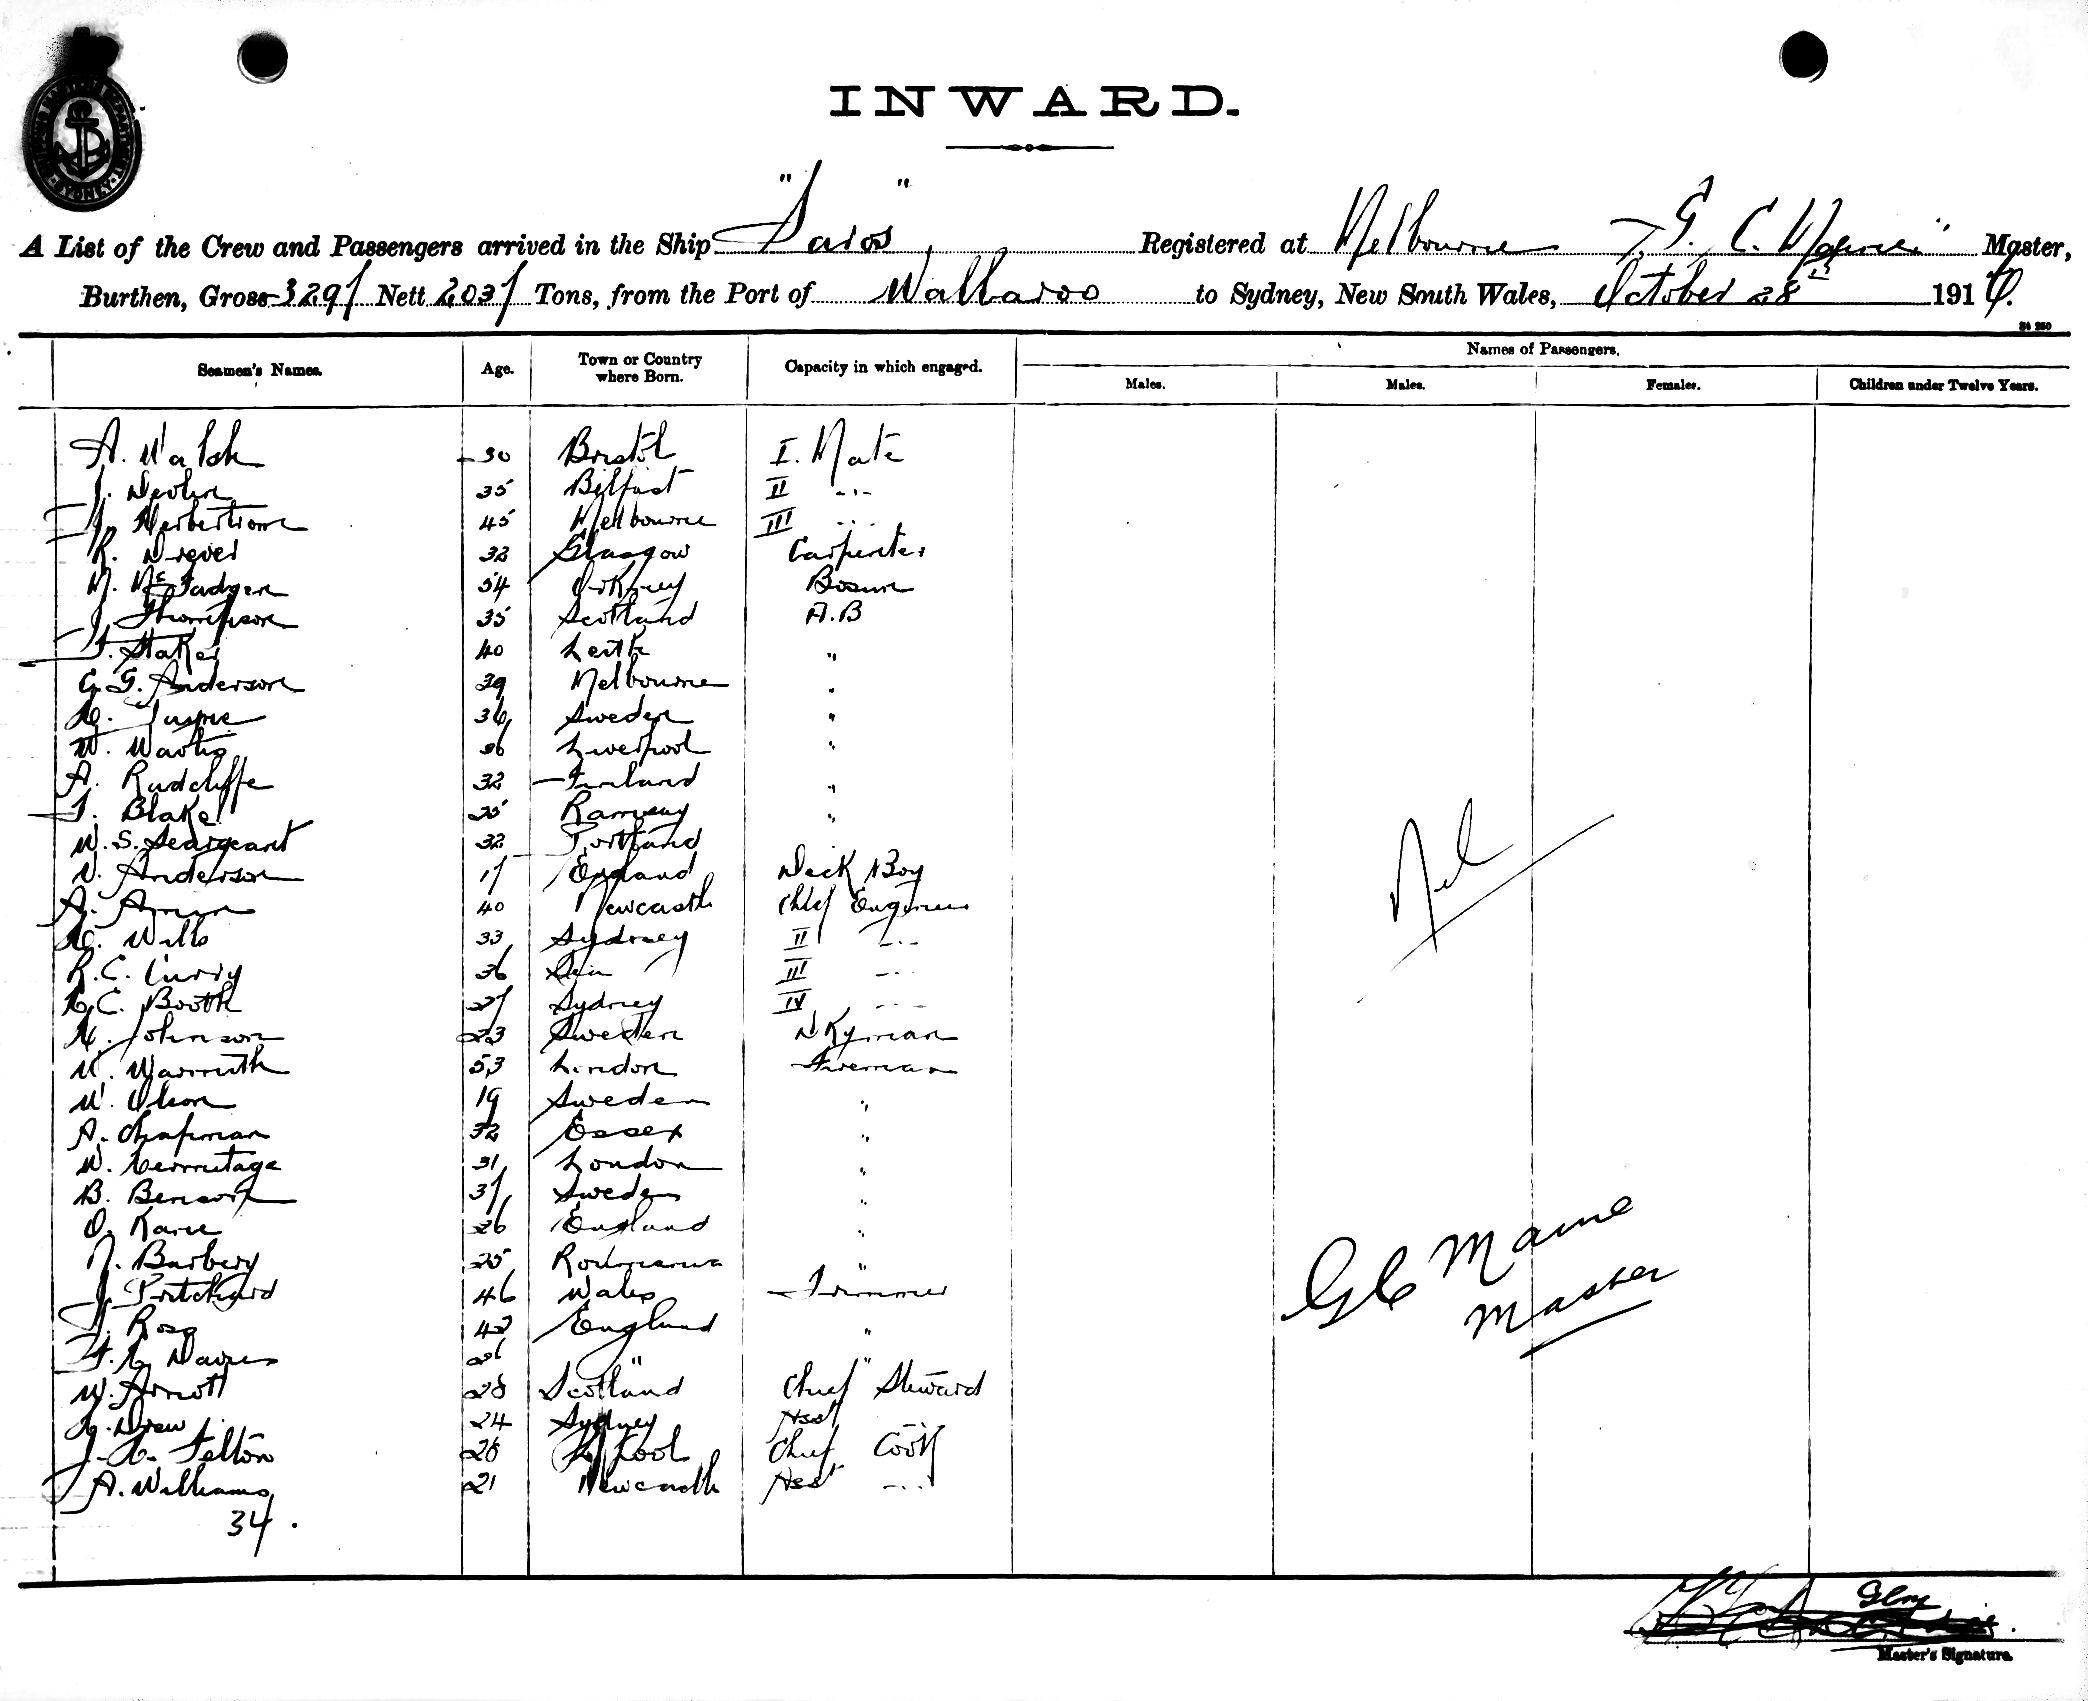 INWARD.
A List of the Crew and Passengers arrived in the Ship "Saros" Registered at Melbourne G. C. Master,
Burthen, Gross 3297 Nett 2037 Tons, from the Port of Wallaroo to Sydney, New South Wales, October 28th 191
Seamen's Names. Age. Town or Country where Born. Capacity in which engaged. Names of Passengers.
Males. Males. Females. Children under Twelve Years.
A. Walsh 30 Bristol I. Mate
J. Devlin 35 Belfast II -..-
J. 45 Melbourne III -..-
R. Drever 32 Glasgow Carpenter
M. McFadyen 54 Orkney Bosun
J. Thompson 35 Scotland A.B
F. Staker 40 Leith "
C. G. Anderson 39 Melbourne "
36 Sweden "
W. 36 Liverpool "
A. Radcliffe 32 Finland "
F. Blake 25 Ramsey "
W. S. Seargeant 32 Portland
D. Anderson 17 England Deck Boy
A. 40 Newcastle Chief Engineer
H. Wills 33 Sydney II -..-
R. C. Curry 36 Sea III -..-
C. Booth 27 Sydney IV -..-
Johnson 23 Sweden Dkyman
W. Warmuth 53 London Fireman
W. Olson 19 Sweden "
A. Chapman 32 Essex "
W. Hermitage 31 London "
B. Benson 37 Sweden "
O. 26 England "
N. Barbery 25 Roumania "
J. Pritchard 46 Wales Trimmer
J. Ross 42 England "
F. H. Davies 26 " "
W. Arnott 28 Scotland Chief Steward
H. Drew 24 Sydney Asst
J. H. Felton 28 L'pool Chief Cook
A. Williams 21 Newcastle Asst -..-
34.
Nil
G C Maine
Master
Master's Signature.